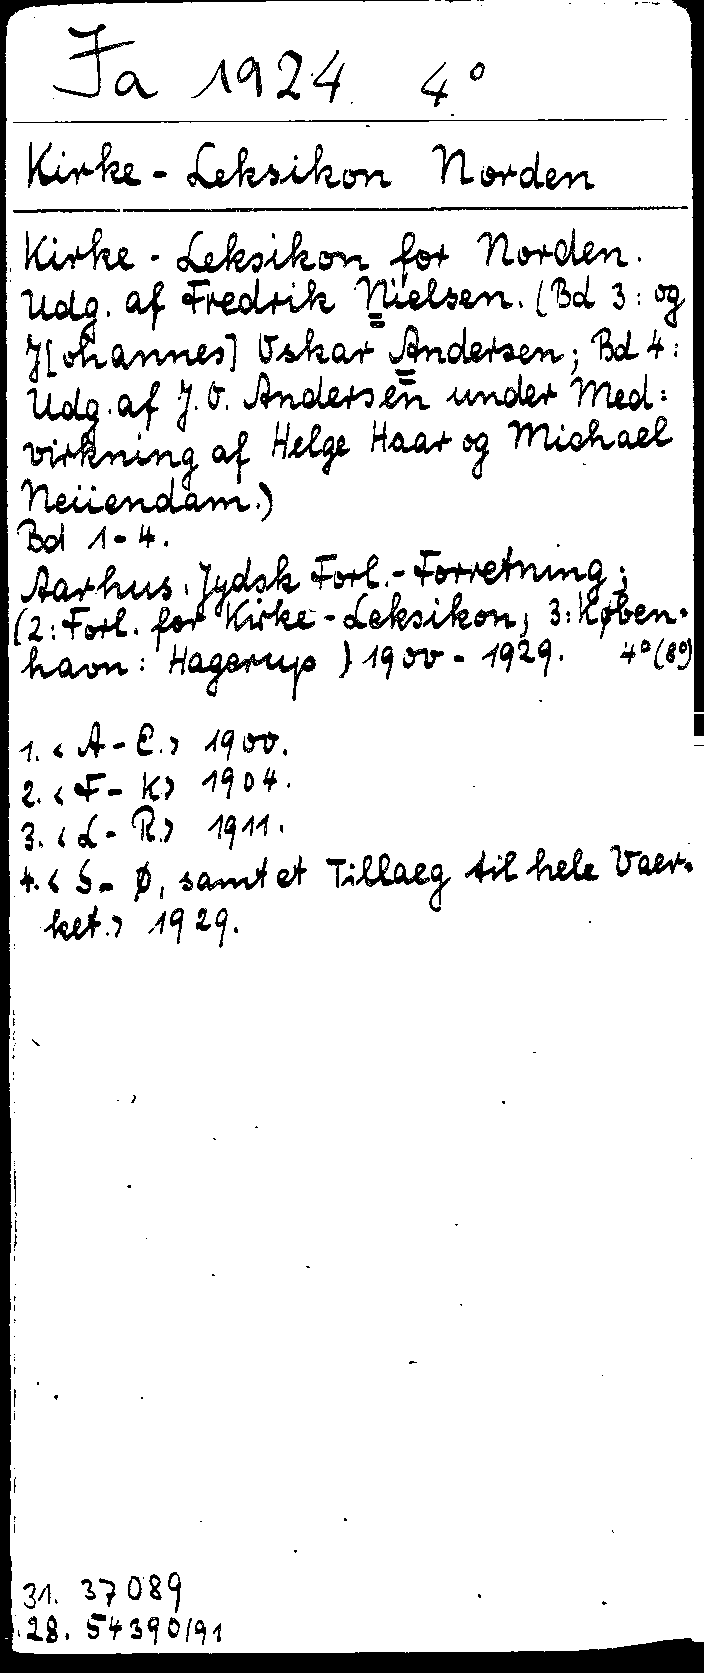 Ja 1924 4°
Kirke-Leksikon Norden
Kirke-Leksikon for Norden.
Udg. af Fredrik Nielsen. (Bd 3: og
J[ohannes] Oskar Andersen; Bd 4:
Udg. af J. O. Andersen under Med=
virkning af Helge Haar og Michael
Neiiendam.)
Bd 1-4.
Aarhus: Jydsk Forl.-Forretning;
(2: Forl. for Kirke-Leksikon; 3: Køben-
havn: Hagerup) 1900-1929. 4°(8°)
1. <A-E.> 1900.
2. <F-K> 1904.
3. <L-R.> 1911.
4. <S-Ø, samt et Tillaeg til hele Vaer-
ket.> 1929.
31. 37089
28. 54390/91